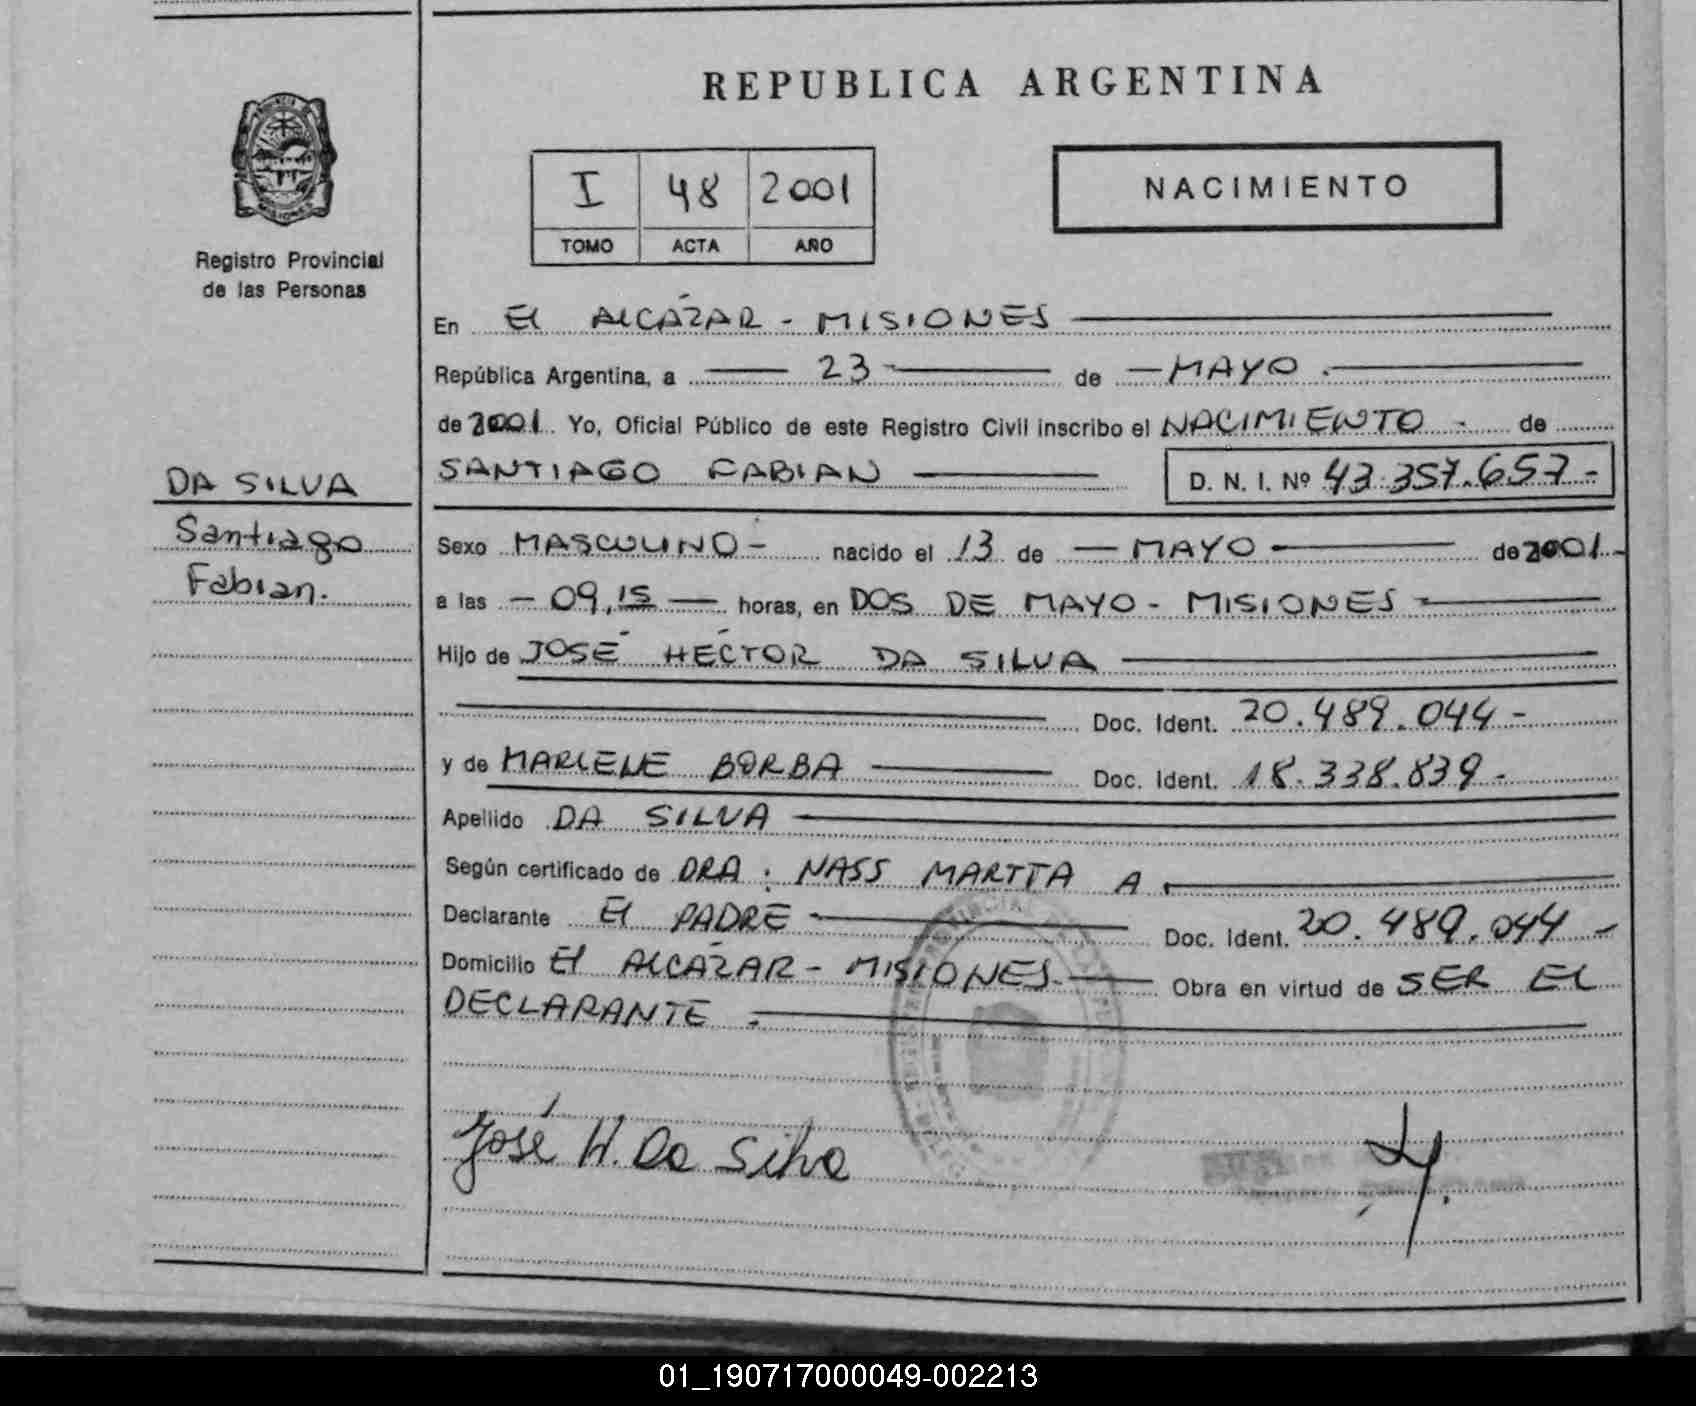 REPUBLICA ARGENTINA
I 48 2001
TOMO ACTA AÑO
NACIMIENTO
MISIONES
Registro Provincial
de las Personas
DA SILVA
Santiago
Fabian.
En El ALCÁZAR - MISIONES
República Argentina, a 23 de MAYO.
de 2001. Yo, Oficial Público de este Registro Civil inscribo el NACIMIENTO - de
SANTIAGO FABIAN D. N. I. Nº 43.357.657-
Sexo MASCULINO - nacido el 13 de MAYO de 2001.-
a las - 09,15 horas, en DOS DE MAYO - MISIONES
Hijo de JOSÉ HÉCTOR DA SILVA
Doc. Ident. 20.489.044-
y de MARLENE BORBA Doc. Ident. 18.338.839-
Apellido DA SILVA
Según certificado de DRA: NASS MARTTA A.
Declarante El PADRE Doc. Ident. 20.489.044-
Domicilio El ALCÁZAR - MISIONES. Obra en virtud de SER EL
DECLARANTE.
José H. Da Silva
01_190717000049-002213